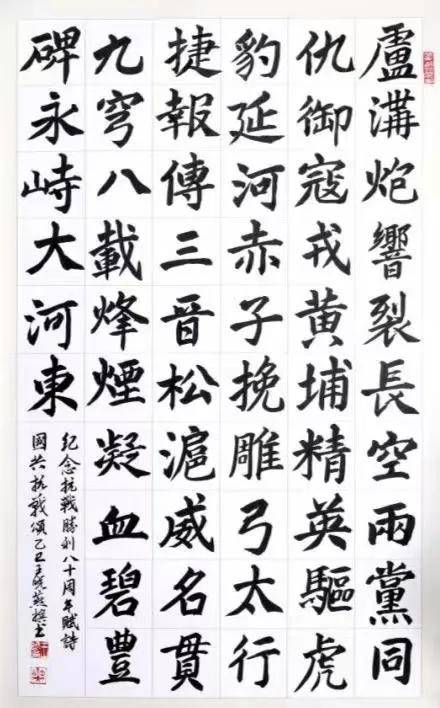 盧溝炮響裂長空兩黨同
仇御寇戎黄埔精英驅虎
豹延河赤子挽雕弓太行
捷報傳三晉松滬威名貫
九穹八載烽煙凝血碧豐
碑永峙大河東
紀念抗戰勝利八十周年賦詩
國共抗戰頌乙巳王曉燕撰书